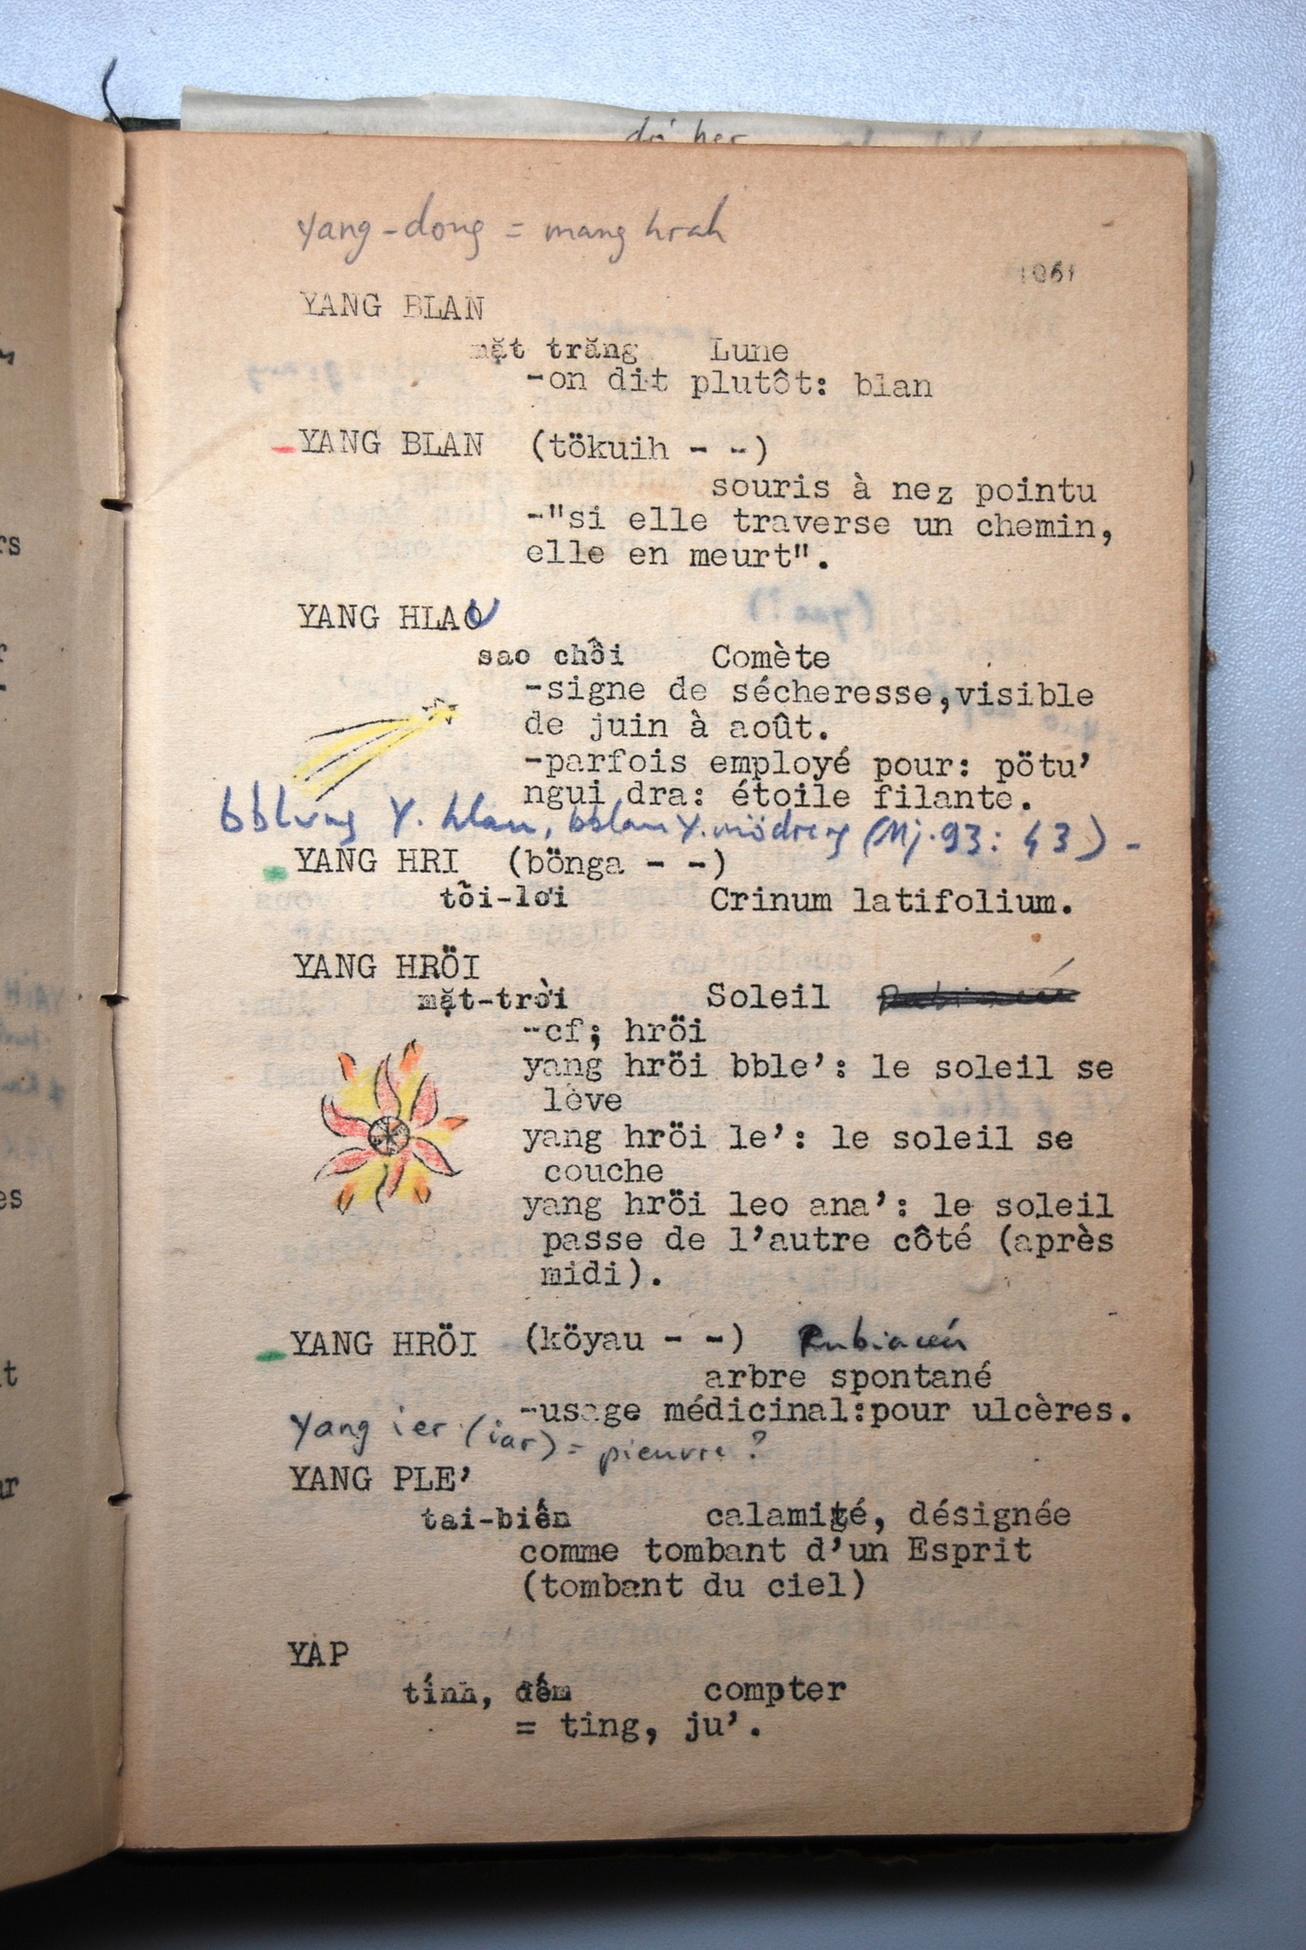 yang-dong = mang hrah
1061
YANG BLAN
mặt trăng Lune
-on dit plutôt: blan
YANG BLAN (tökuih - -)
souris à nez pointu
-"si elle traverse un chemin,
elle en meurt".
YANG HLAU
sao chồi Comète
-signe de sécheresse,visible
de juin à août.
-parfois employé pour: pötu'
ngui dra: étoile filante.
Y. hlau, (Mj.93: 43) -
YANG HRI (bönga - -)
tỏi-lơi Crinum latifolium.
YANG HRÖI
mặt-trời Soleil
-cf; hröi
yang hröi bble': le soleil se
lève
yang hröi le': le soleil se
couche
yang hröi leo ana': le soleil
passe de l'autre côté (après
midi).
YANG HRÖI (köyau - -) Rubiacée
arbre spontané
-usage médicinal:pour ulcères.
Yang ier (iar) = pieuvre ?
YANG PLE'
tai-biến calamité, désignée
comme tombant d'un Esprit
(tombant du ciel)
YAP
tính, đếm compter
= ting, ju'.